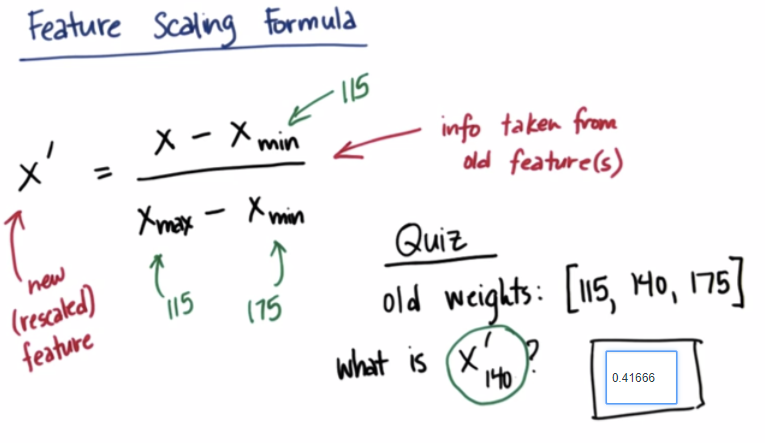 Feature Scaling Formula
115
x' = x - xmin / xmax - xmin
info taken from
old feature(s)
115
175
new
(rescaled)
feature
Quiz
old weights: [115, 140, 175]
what is x'140?
0.41666